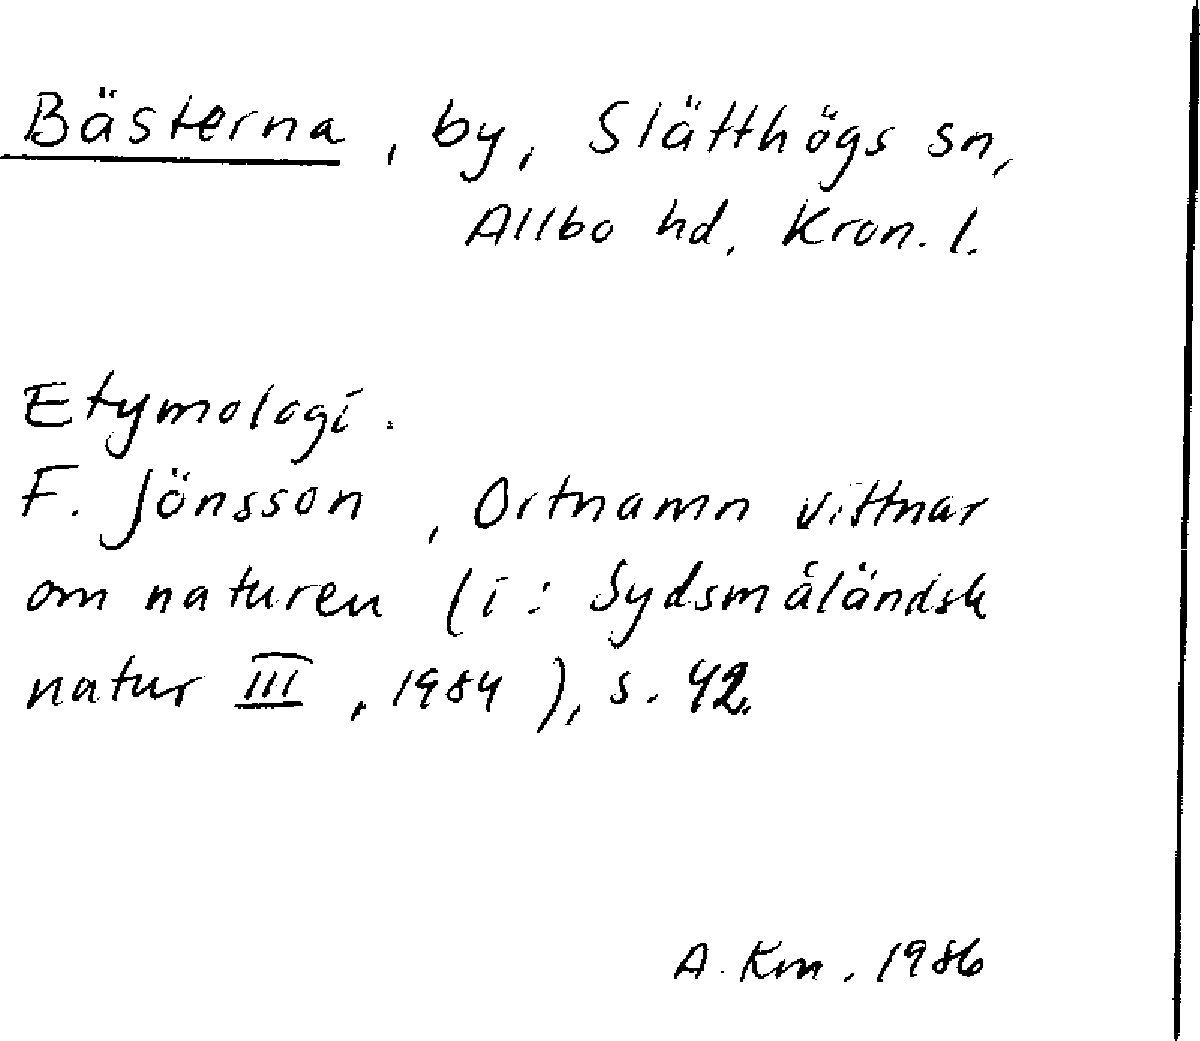 Bästerna, by, Slätthögs sn,
Allbo hd, Kron. l.
Etymologi.
F. Jönsson, Ortnamn vittnar
om naturen (i: Sydsmåländsk
natur III, 1984), s. 42.
A. Km. 1986